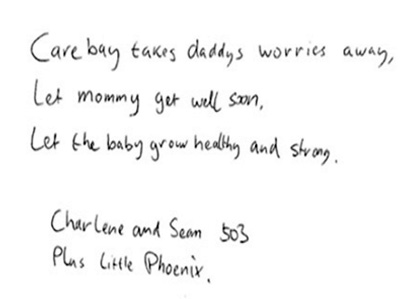 Care bay takes daddys worries away,
Let mommy get well soon,
Let the baby grow healthy and strong.
Charlene and Sean 503
Plus Little Phoenix.